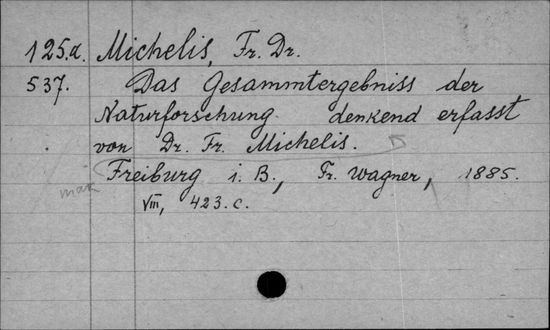 125.d. Michelis, Fr. Dr.
537. Das Gesammtergebniss der
Naturforschung denkend erfasst
von Dr. Fr. Michelis.
Freiburg i. B., Fr. Wagner, 1885.
VIII, 423. c.